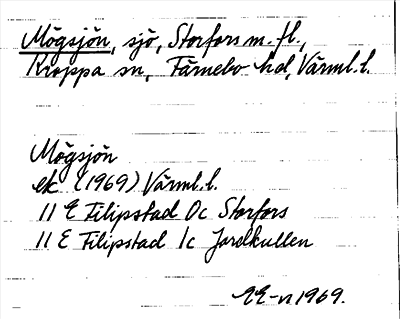 Mögsjön, sjö, Storfors m. fl.,
Kroppa sn, Färnebo hd, Värml. l.
Mögsjön
ek (1969) Värml. l.
11 E Filipstad 0c Storfors
11 E Filipstad 1c Jordkullen
1969.